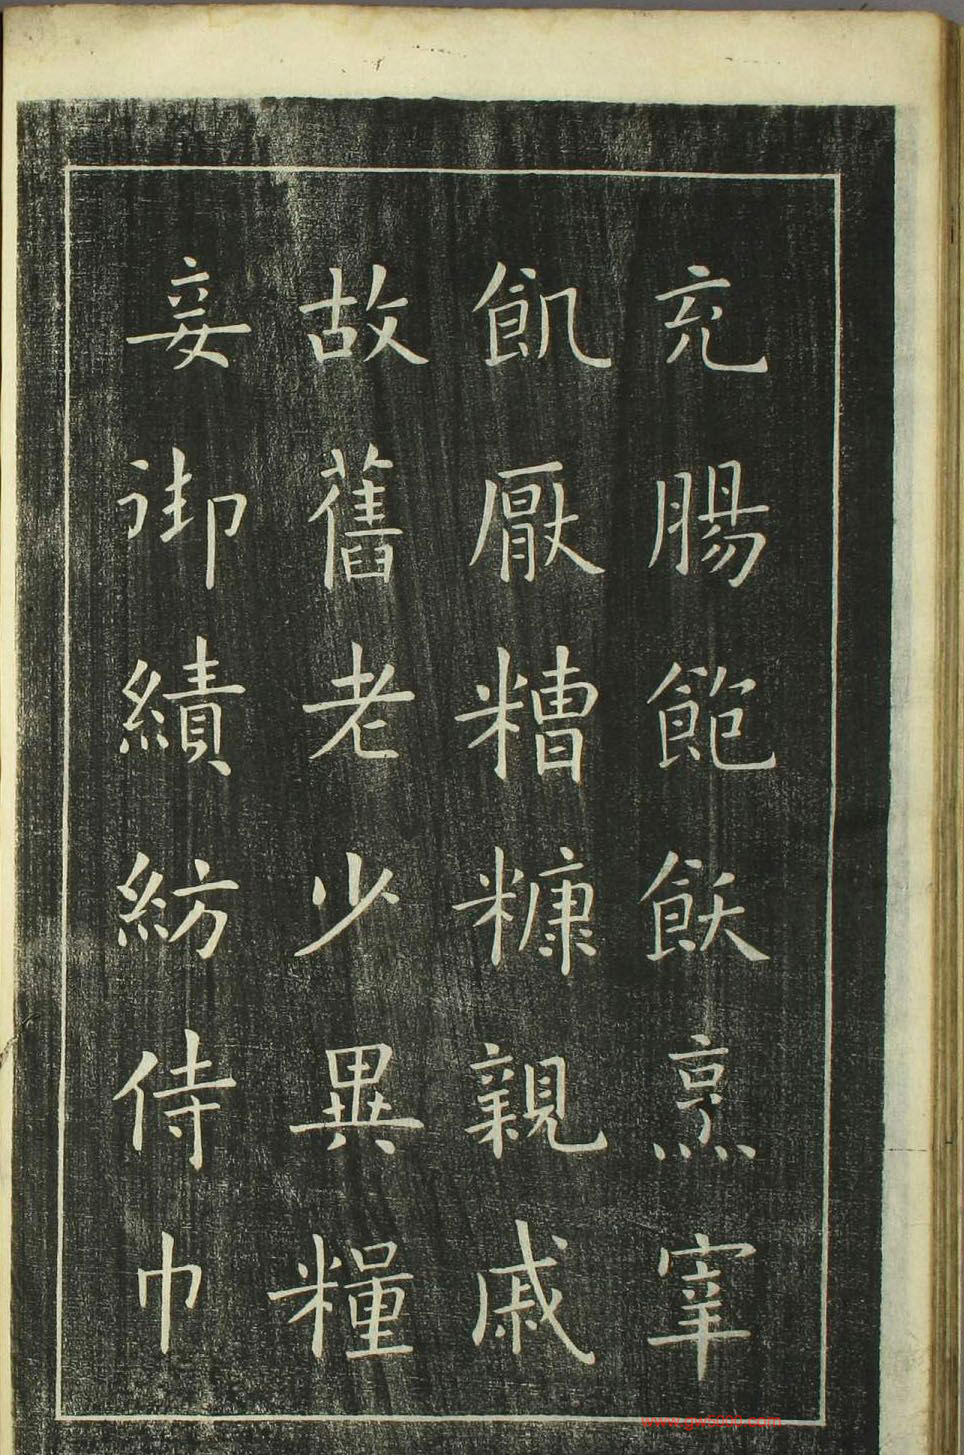 充腸飽飫烹宰
飢厭糟糠親戚
故舊老少異糧
妾御績紡侍巾
www.gw5000.com